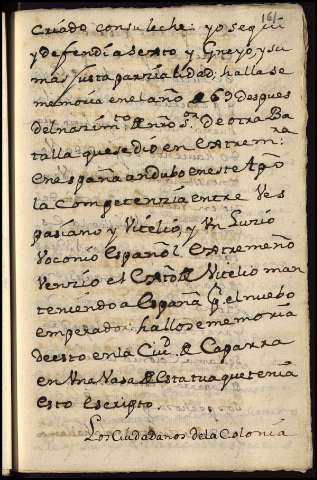 161
criado con su leche: yo segui
y defendia a Sexto y Gneyo, y su
mas Justa parzialidad; hallase
memoria en el año de 69 despues
del nazim.to de nro s.or De otra Ba
talla que se dio en extrem.ra
En españa andubo en este Año
la Competenzia entre Ves
pasiano y Vitelio, y Un Luzio
Voconio Español extremeño
Venzio el exto de Vitelio man
teniendo a España p.r el nuebo
emperador: hallose memoria
de esto en la Ciu.d de Caparra
en Una Vasa de Estatua que tenia
esto escripto.
Los Ciudadanos de la Colonia